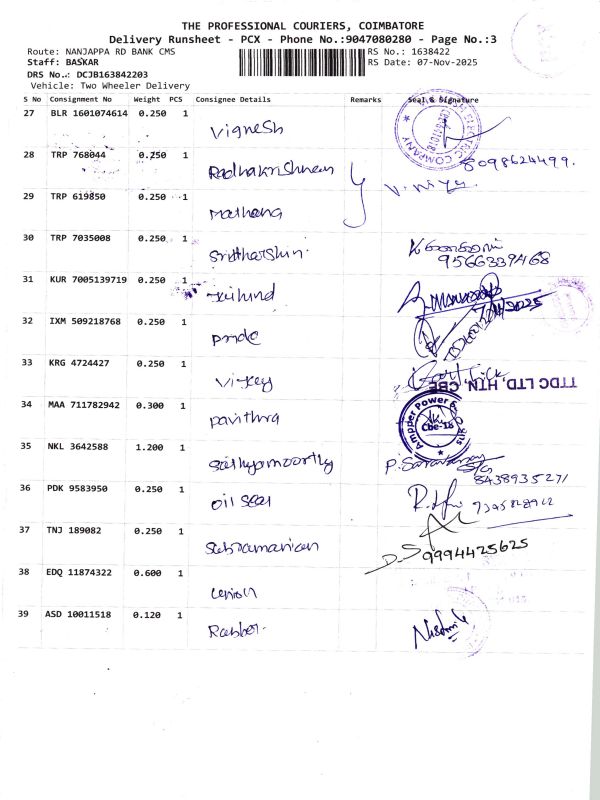 THE PROFESSIONAL COURIERS, COIMBATORE
Delivery Runsheet - PCX - Phone No.:9047080280 - Page No.:3
Route: NANJAPPA RD BANK CMS
RS No.: 1638422
Staff: BASKAR
RS Date: 07-Nov-2025
DRS No.: DCJB163842203
Vehicle: Two Wheeler Delivery
S No Consignment No Weight PCS Consignee Details Remarks Seal & Signature
27 BLR 1601074614 0.250 1 Vignesh
28 TRP 768044 0.250 1 Radhakrishnan 8098624499.
29 TRP 619850 0.250 1
30 TRP 7035008 0.250 1
9566339468
31 KUR 7005139719 0.250 1
32 IXM 509218768 0.250 1 pride
33 KRG 4724427 0.250 1 Vi-key
TTDC LTD, HTN, CBE
34 MAA 711782942 0.300 1 pavithra
Ampper Power
Cbe-18
35 NKL 3642588 1.200 1 Sathyamoorthy P. Saravanan
8438935271
36 PDK 9583950 0.250 1 oil seal
37 TNJ 189082 0.250 1 Subramanian
D.S 9994425625
38 EDQ 11874322 0.600 1
39 ASD 10011518 0.120 1 Rabber